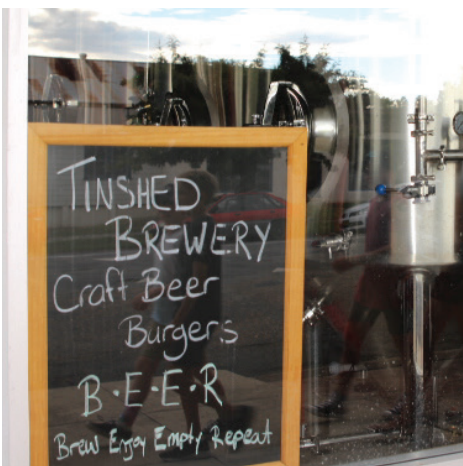 TINSHED
BREWERY
Craft Beer
Burgers
B·E·E·R
Brew Enjoy Empty Repeat